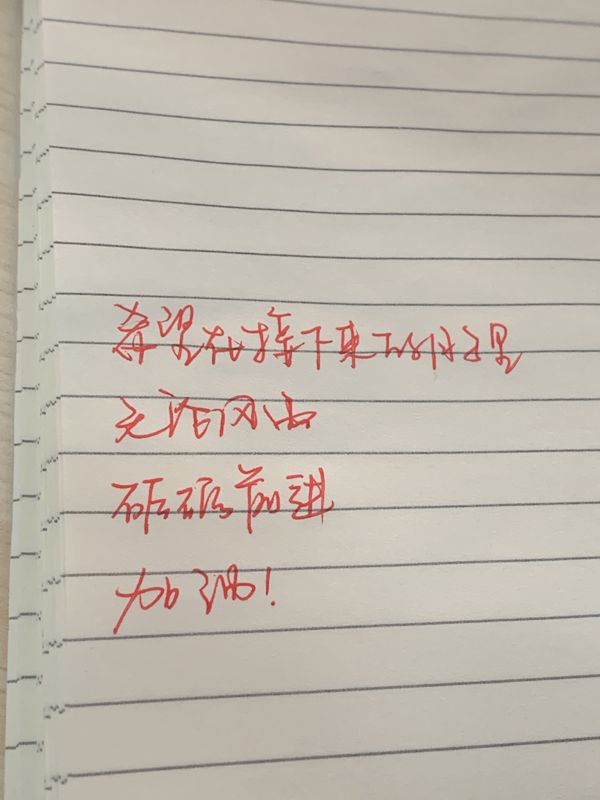 希望在接下来的日子里
无论风雨
砥砺前进
加油!